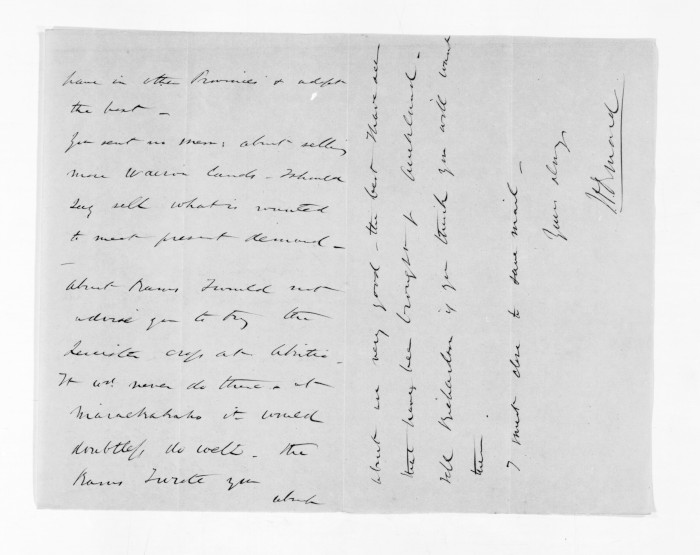 have in other Provinces & adopt
the best —
You sent no memo; about selling
more Wairoa lands — I should
say sell what is wanted
to meet present demand —
About Rams I would not
advise you to try the
Leicester cross at Akitio.
It wd. never do there & at
Maraekakaho it would
doubtless do well — The
Rams I wrote you
about
about are very good — the best I have seen
that have been brought f Auckland —
tell Richardson if you think you will want
them —
I must close to save mail —
Yours always
JD Ormond